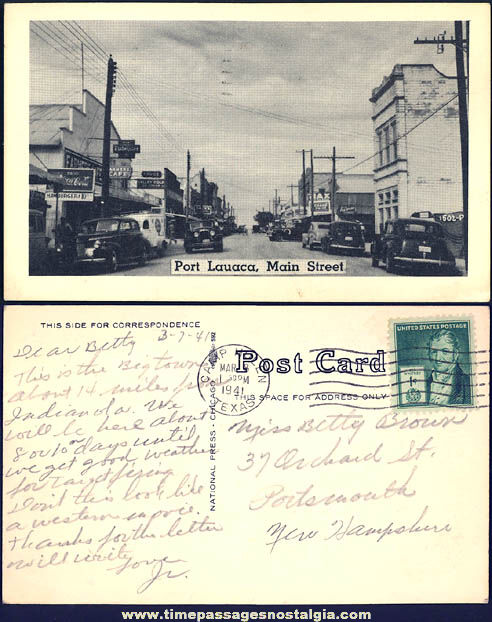 Coca-Cola
HAMBURGERS
CAFE
Port Lauaca, Main Street
THIS SIDE FOR CORRESPONDENCE
3-7-41
Dear Betty
This is the Big town
about 14 miles from
Indianola. We
will be here about
8 or 10 days until
we get good weather
for Target firing
Don't this look like
a western movie.
Thanks for the letter
will write
Love
Jr.
NATIONAL PRESS - CHICAGO
CAMP
MAR
PM
1941
TEXAS
Post Card
THIS SPACE FOR ADDRESS ONLY
UNITED STATES POSTAGE
1¢
Miss Betty Brown
37 Orchard St.
Portsmouth
New Hampshire
www.timepassagesnostalgia.com